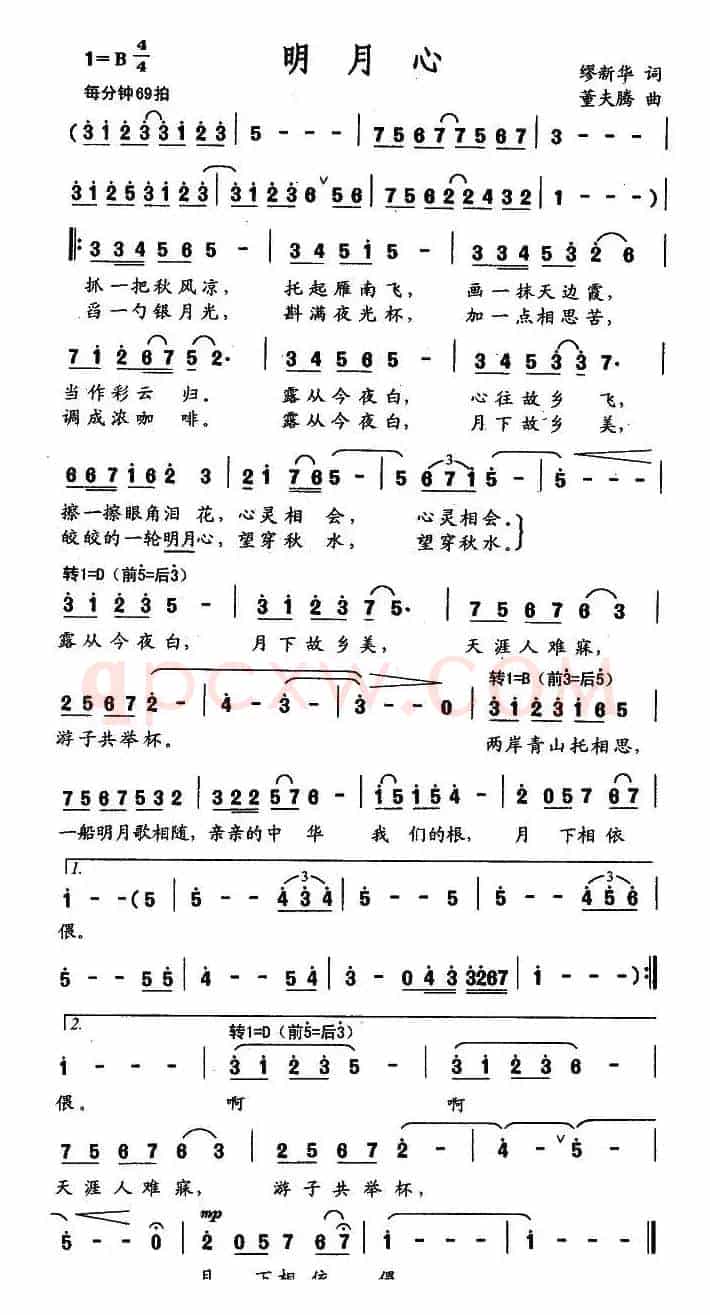 1=B 4/4
明月心
缪新华 词
每分钟69拍
董夫腾 曲
(3123 3123 | 5 - - - | 7567 7567 | 3 - - - |
3125 3123 | 3123 6 ∨ 56 | 7562 2432 | 1 - - -)
‖: 3 34 5 6 5 - | 3 4 5 1 5 - | 3 34 5 3 2 6 |
抓一把秋风凉， 托起雁南飞， 画一抹天边霞，
舀一勺银月光， 斟满夜光杯， 加一点相思苦，
7 1 2 6 7 5 2. | 3 4 5 6 5 - | 3 4 5 3 3 7. |
当作彩云 归。 露从今夜白， 心往故乡 飞，
调成浓咖 啡。 露从今夜白， 月下故乡 美，
6 6 7 1 6 2 3 | 2 1 7 6 5 - | 5 6 7 1 5 - | 5 - - - |
擦一擦眼角泪 花，心灵相 会， 心灵相会。
皎皎的一轮明月心，望穿秋 水， 望穿秋水。
转1=D（前5=后3）
3 1 2 3 5 - | 3 1 2 3 7 5. | 7 5 6 7 6 3 |
露从今夜白， 月下故乡美， 天涯人难寐，
qpcxw.COM
转1=B（前3=后5）
2 5 6 7 2 - | 4 - 3 - | 3 - - 0 | 3 1 2 3 1 6 5 |
游子共举杯。 两岸青山托相思，
7 5 6 7 5 3 2 | 3 2 2 5 7 6 - | 1 1 5 1 5 4 - | 2 0 5 7 6 7 |
一船明月歌相随，亲亲的中 华 我 们的根， 月 下相依
1.
1 - - (5 | 5 - - 4 3 4 | 5 - - 5 | 5 - - 4 5 6 |
偎。
5 - - 5 5 | 4 - - 5 4 | 3 - 0 4 3 3 2 6 7 | 1 - - -) :‖
2.
转1=D（前5=后3）
1 - - - | 3 1 2 3 5 - | 3 1 2 3 6 - |
偎。 啊 啊
7 5 6 7 6 3 | 2 5 6 7 2 - | 4 - ∨ 5 - |
天涯人难寐， 游子共举杯，
mp
5 - - 0 | 2 0 5 7 6 7 | 1 - - - | 1 - - - ‖
月 下相依 偎